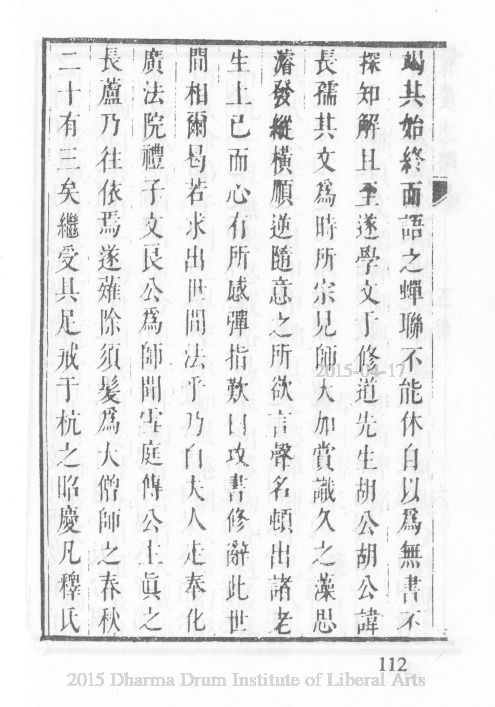 竭其始終面語之蟬聯不能休自以爲無書不
探知解且至遂學文于修道先生胡公胡公諱
長孺其文爲時所宗見師大加賞識久之藻思
濬發縱橫順逆隨意之所欲言聲名頓出諸老
生上已而心有所感彈指歎曰攻書修辭此世
間相爾曷若求出世間法乎乃白大人走奉化
廣法院禮子文艮公爲師聞雪庭傳公主真之
長蘆乃往依焉遂薙除須髮爲大僧師之春秋
二十有三矣繼受具足戒于杭之昭慶凡釋氏
2015-04-17
112
2015 Dharma Drum Institute of Liberal Arts